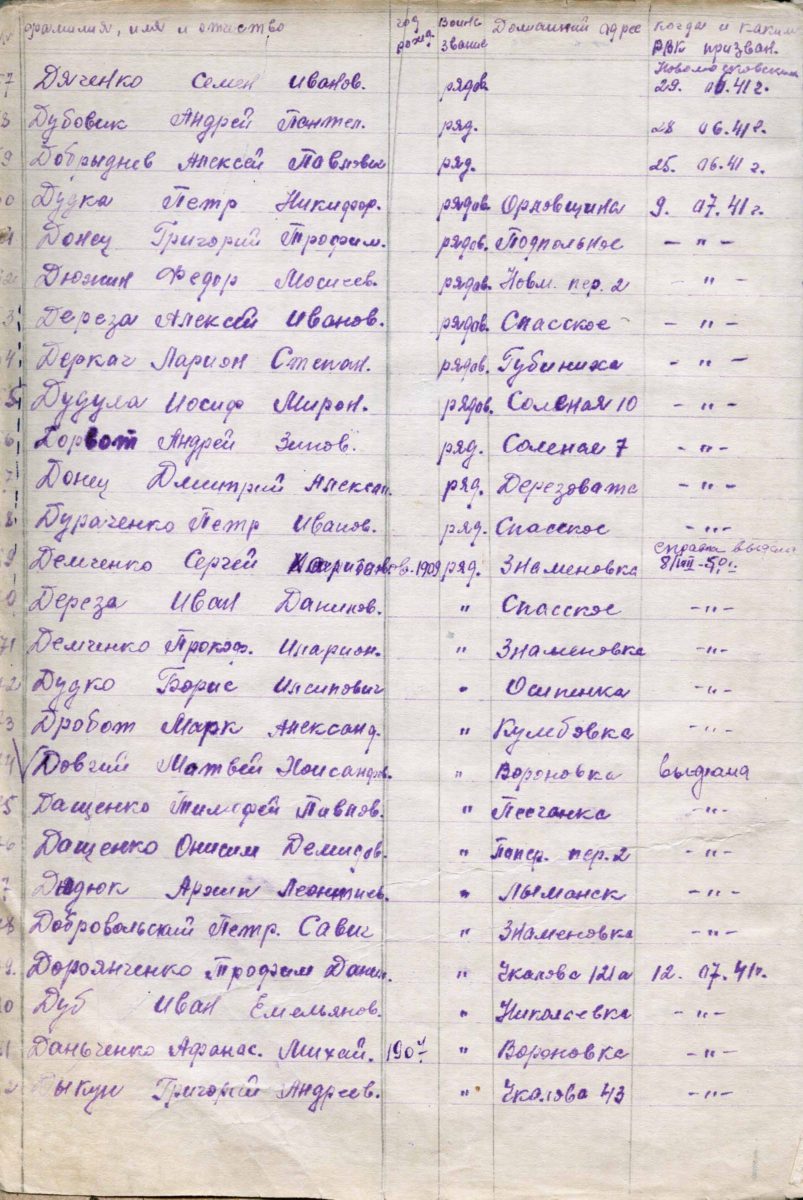 фамилия, имя и отчество год рожд. Воинс звание Домашний адрес когда и каким РВК призван.
Новомосковским
7 Дяченко Семен Иванов. рядов. 29. 06.41г.
8 Дубовик Андрей Пантел. ряд. 28 06.41г.
9 Добрыднев Алексей Павлович ряд. 25. 06.41 г.
0 Дудка Петр Никифор. рядов. Орловщина 9. 07.41г.
Донец Григорий Трофим. рядов. Подпольное - " -
2 Дюжин Федор Мосиев. рядов. Новм. пер. 2 - " -
3 Дереза Алексей Иванов. рядов. Спасское - " -
4 Деркач Ларион Степан. рядов. Губиниха - " -
5 Дудула Иосиф Мирон. рядов. Соленая 10 - " -
6 Андрей Зинов. ряд. Соленае 7 - " -
7 Донец Дмитрий Алексан. ряд. Дерезовата - " -
8 Дураченко Петр Иванов. ряд. Спасское - " -
справка выдана
9 Демченко Сергей Харитонов. 1909 ряд. Знаменовка 8/VIII-50г.
0 Дереза Иван Данилов. " Спасское - " -
71 Демченко Прокоф. Иларион. " Знаменовка - " -
2 Дудко Борис Иосипович " Осипенка - " -
3 Дробот Марк Александ. " Кулебовка - " -
4 Довгий Матвей " Вороновка выдана
5 Дащенко Тимофей Павлов. " Песчанка - " -
6 Дащенко Онисим Демидов. " пер. 2 - " -
7 Дидюк Архип Леонтиев. " Лыманск - " -
8 Добровольский Петр. Савич " Знаменовка - " -
9. Дороянченко Трофим Данил. " Чкалова 121а 12. 07.41г.
0 Дуб Иван Емельянов. " Николаевка - " -
1 Даньченко Афанас. Михай. 1904 " Вороновка - " -
2 Дыкун Григорий Андреев. " Чкалова 43 - " -